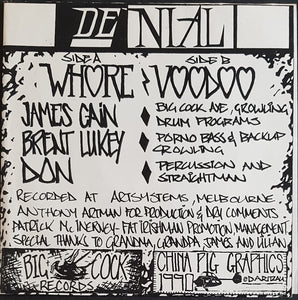 DENIAL
SIDE A SIDE B
WHORE VOODOO
JAMES CAIN BIG COCK AVE, GROWLING
DRUM PROGRAMS
BRENT LUKEY PORNO BASS & BACKUP
GROWLING
DON PERCUSSION AND
STRAIGHTMAN
RECORDED AT ARTSYSTEMS, MELBOURNE.
ANTHONY ARTMAN FOR PRODUCTION & DRY COMMENTS
PATRICK Mc INERNEY - FAT IRISHMAN PROMOTION MANAGEMENT
SPECIAL THANKS TO GRANDMA, GRANDPA JAMES AND LILIAN
BIG COCK CHINA PIG GRAPHICS
RECORDS 1990